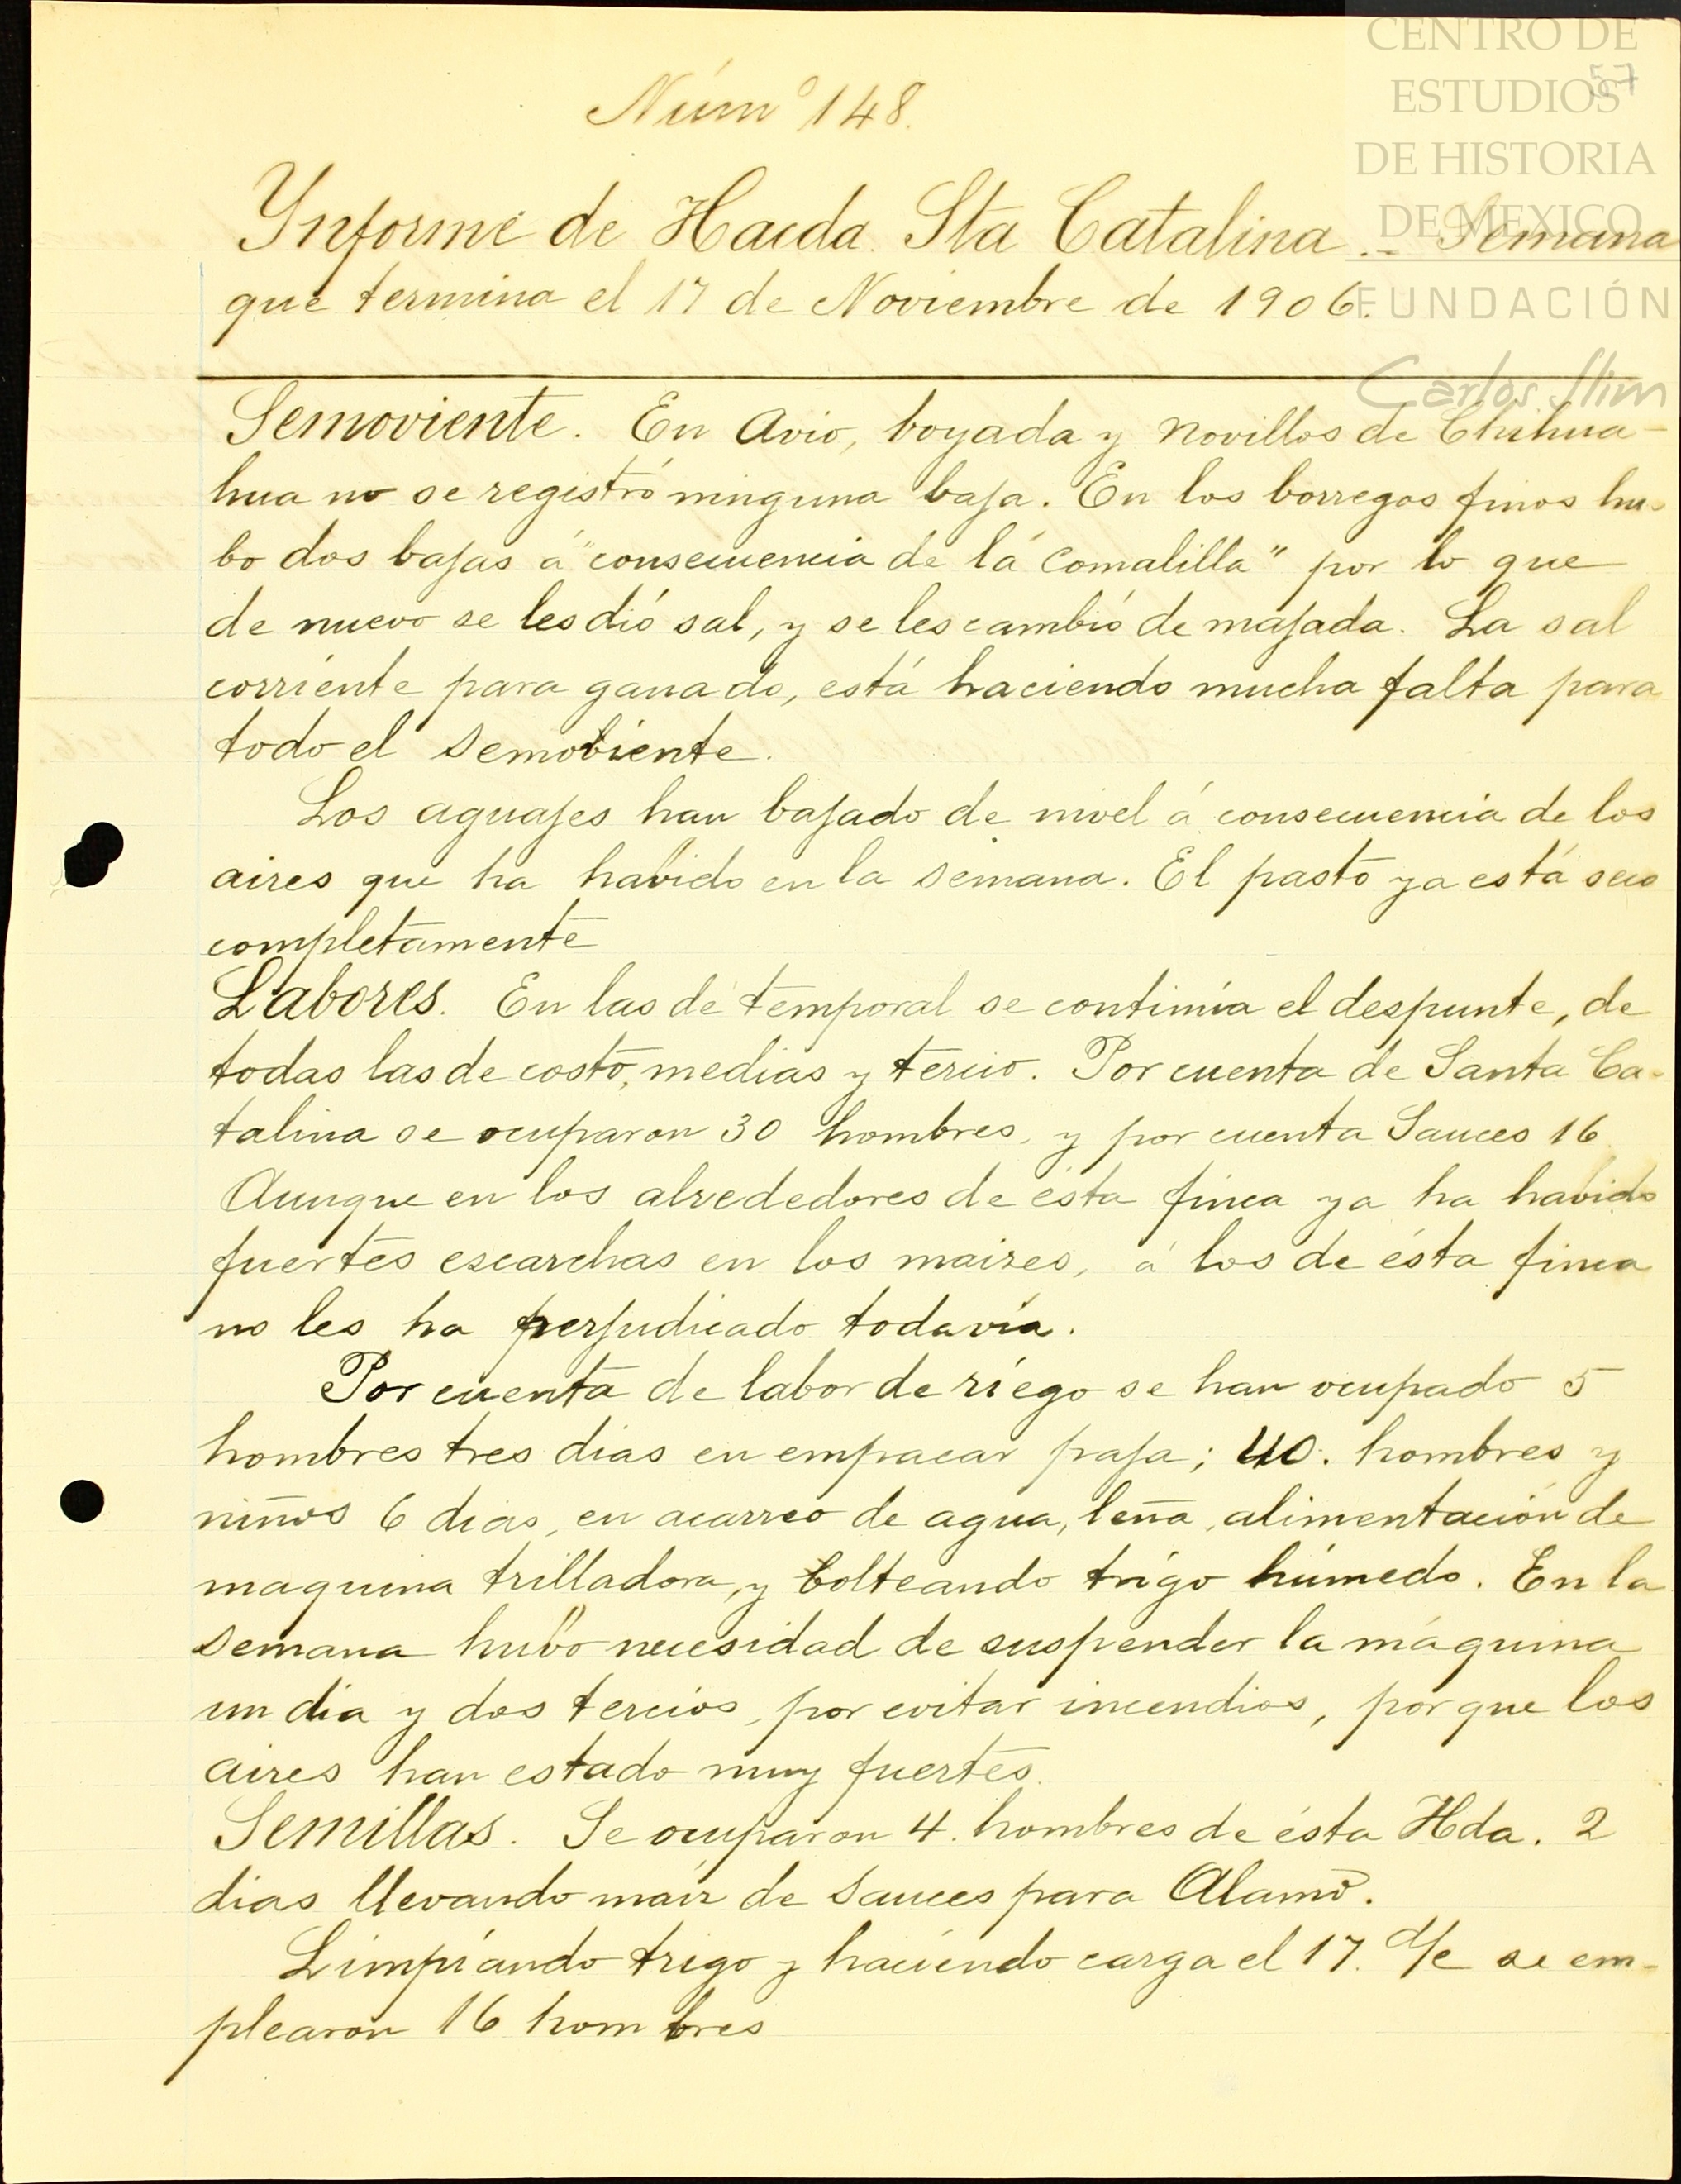 CENTRO DE
57
ESTUDIOS
DE HISTORIA
DE MEXICO
FUNDACIÓN
Carlos Slim
Núm° 148.
Ynforme de Hacda. Sta Catalina.- Semana
que termina el 17 de Noviembre de 1906.
Semoviente. En Avio, boyada y novillos de Chihua-
hua no se registró ninguna baja. En los borregos finos hu-
bo dos bajas á "consecuencia de la comalilla" por lo que
de nuevo se les dió sal, y se les cambió de majada. La sal
corriente para ganado, está haciendo mucha falta para
todo el semobiente.
Los aguajes han bajado de nivel á consecuencia de los
aires que ha habido en la semana. El pasto ya está seco
completamente
Labores. En las de temporal se continúa el despunte, de
todas las de costo, medias y tercio. Por cuenta de Santa Ca-
talina se ocuparon 30 hombres, y por cuenta Sauces 16
Aunque en los alrededores de ésta finca ya ha habido
fuertes escarchas en los maizes, á los de ésta finca
no les ha perjudicado todavía.
Por cuenta de labor de riego se han ocupado 5
hombres tres dias en empacar paja; 40. hombres y
niños 6 dias, en acarreo de agua, leña, alimentación de
maquina trilladora, y bolteando trigo húmedo. En la
semana hubo necesidad de suspender la máquina
un dia y dos tercios, por evitar incendios, porque los
aires han estado muy fuertes.
Semillas. Se ocuparon 4. hombres de ésta Hda. 2
dias llevando maíz de Sauces para Alamo.
Limpiando trigo y haciendo carga el 17. d/e se em-
plearon 16 hombres